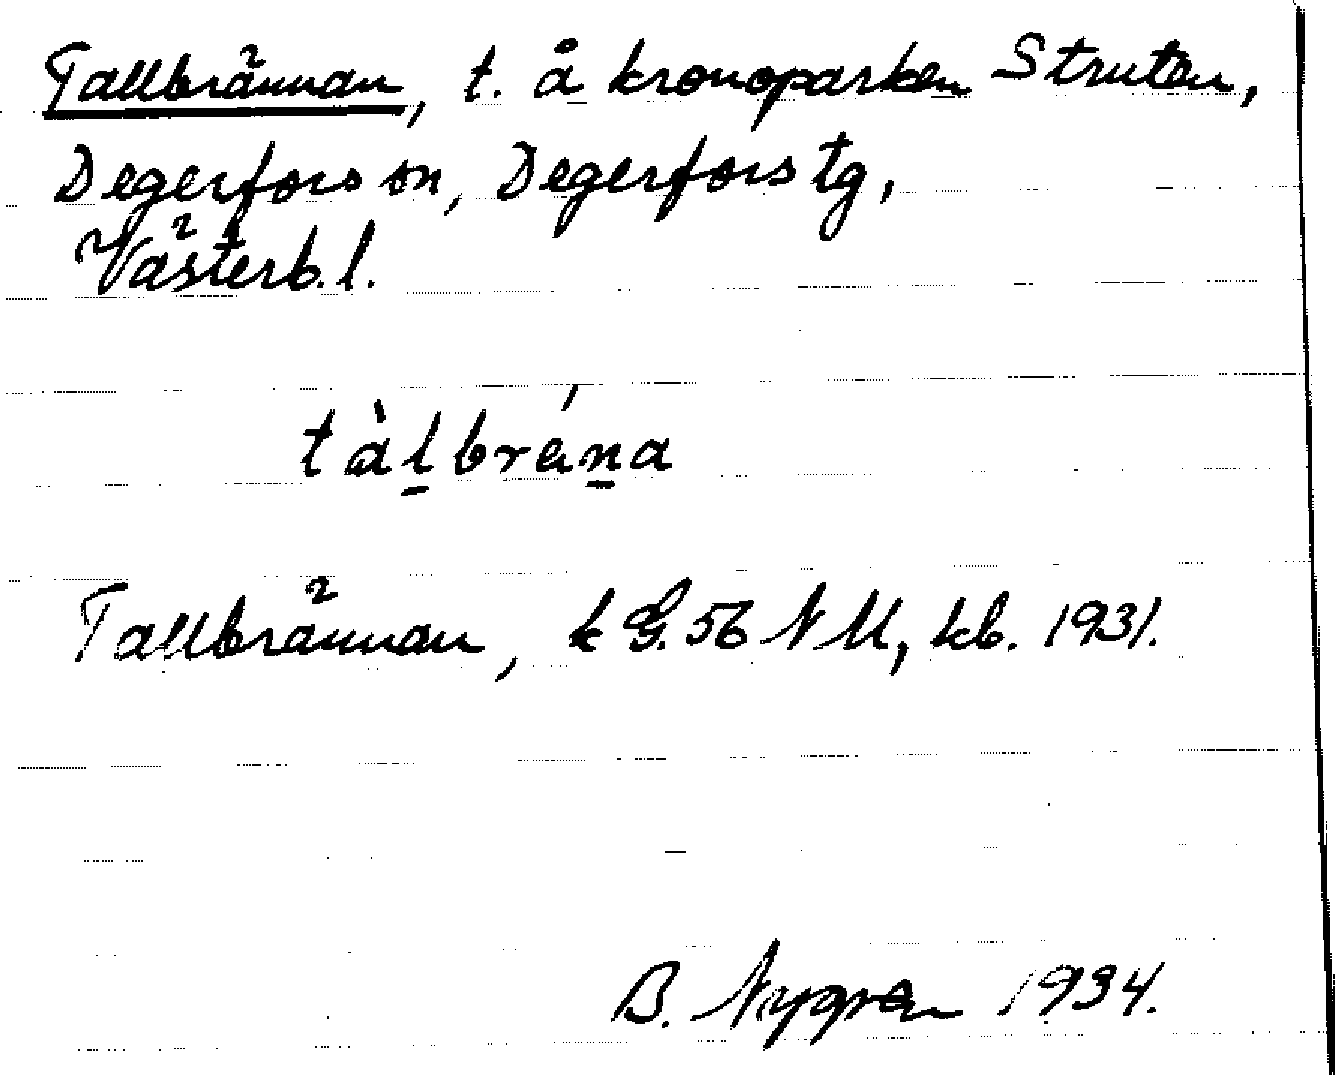 Tallbrännan, t. å kronoparken Struten,
Degerfors sn, Degerfors tg,
Västerb. l.
tàl̠brán̠a
Tallbrännan, k G. 56 NM, kb. 1931.
B. Nygren 1934.